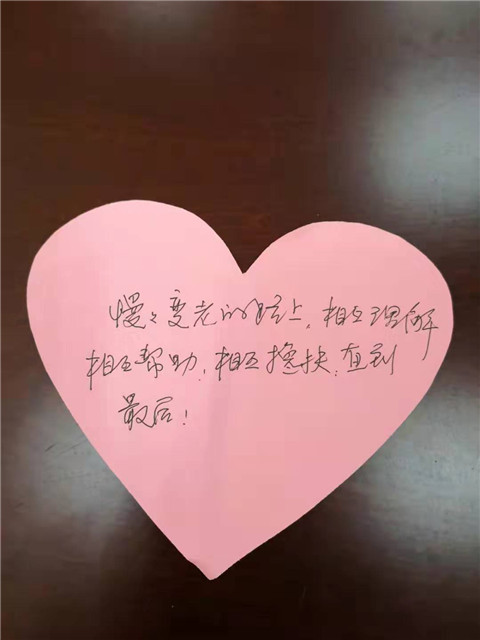 慢々变老的路上，相互理解
相互帮助，相互搀扶，直到
最后！